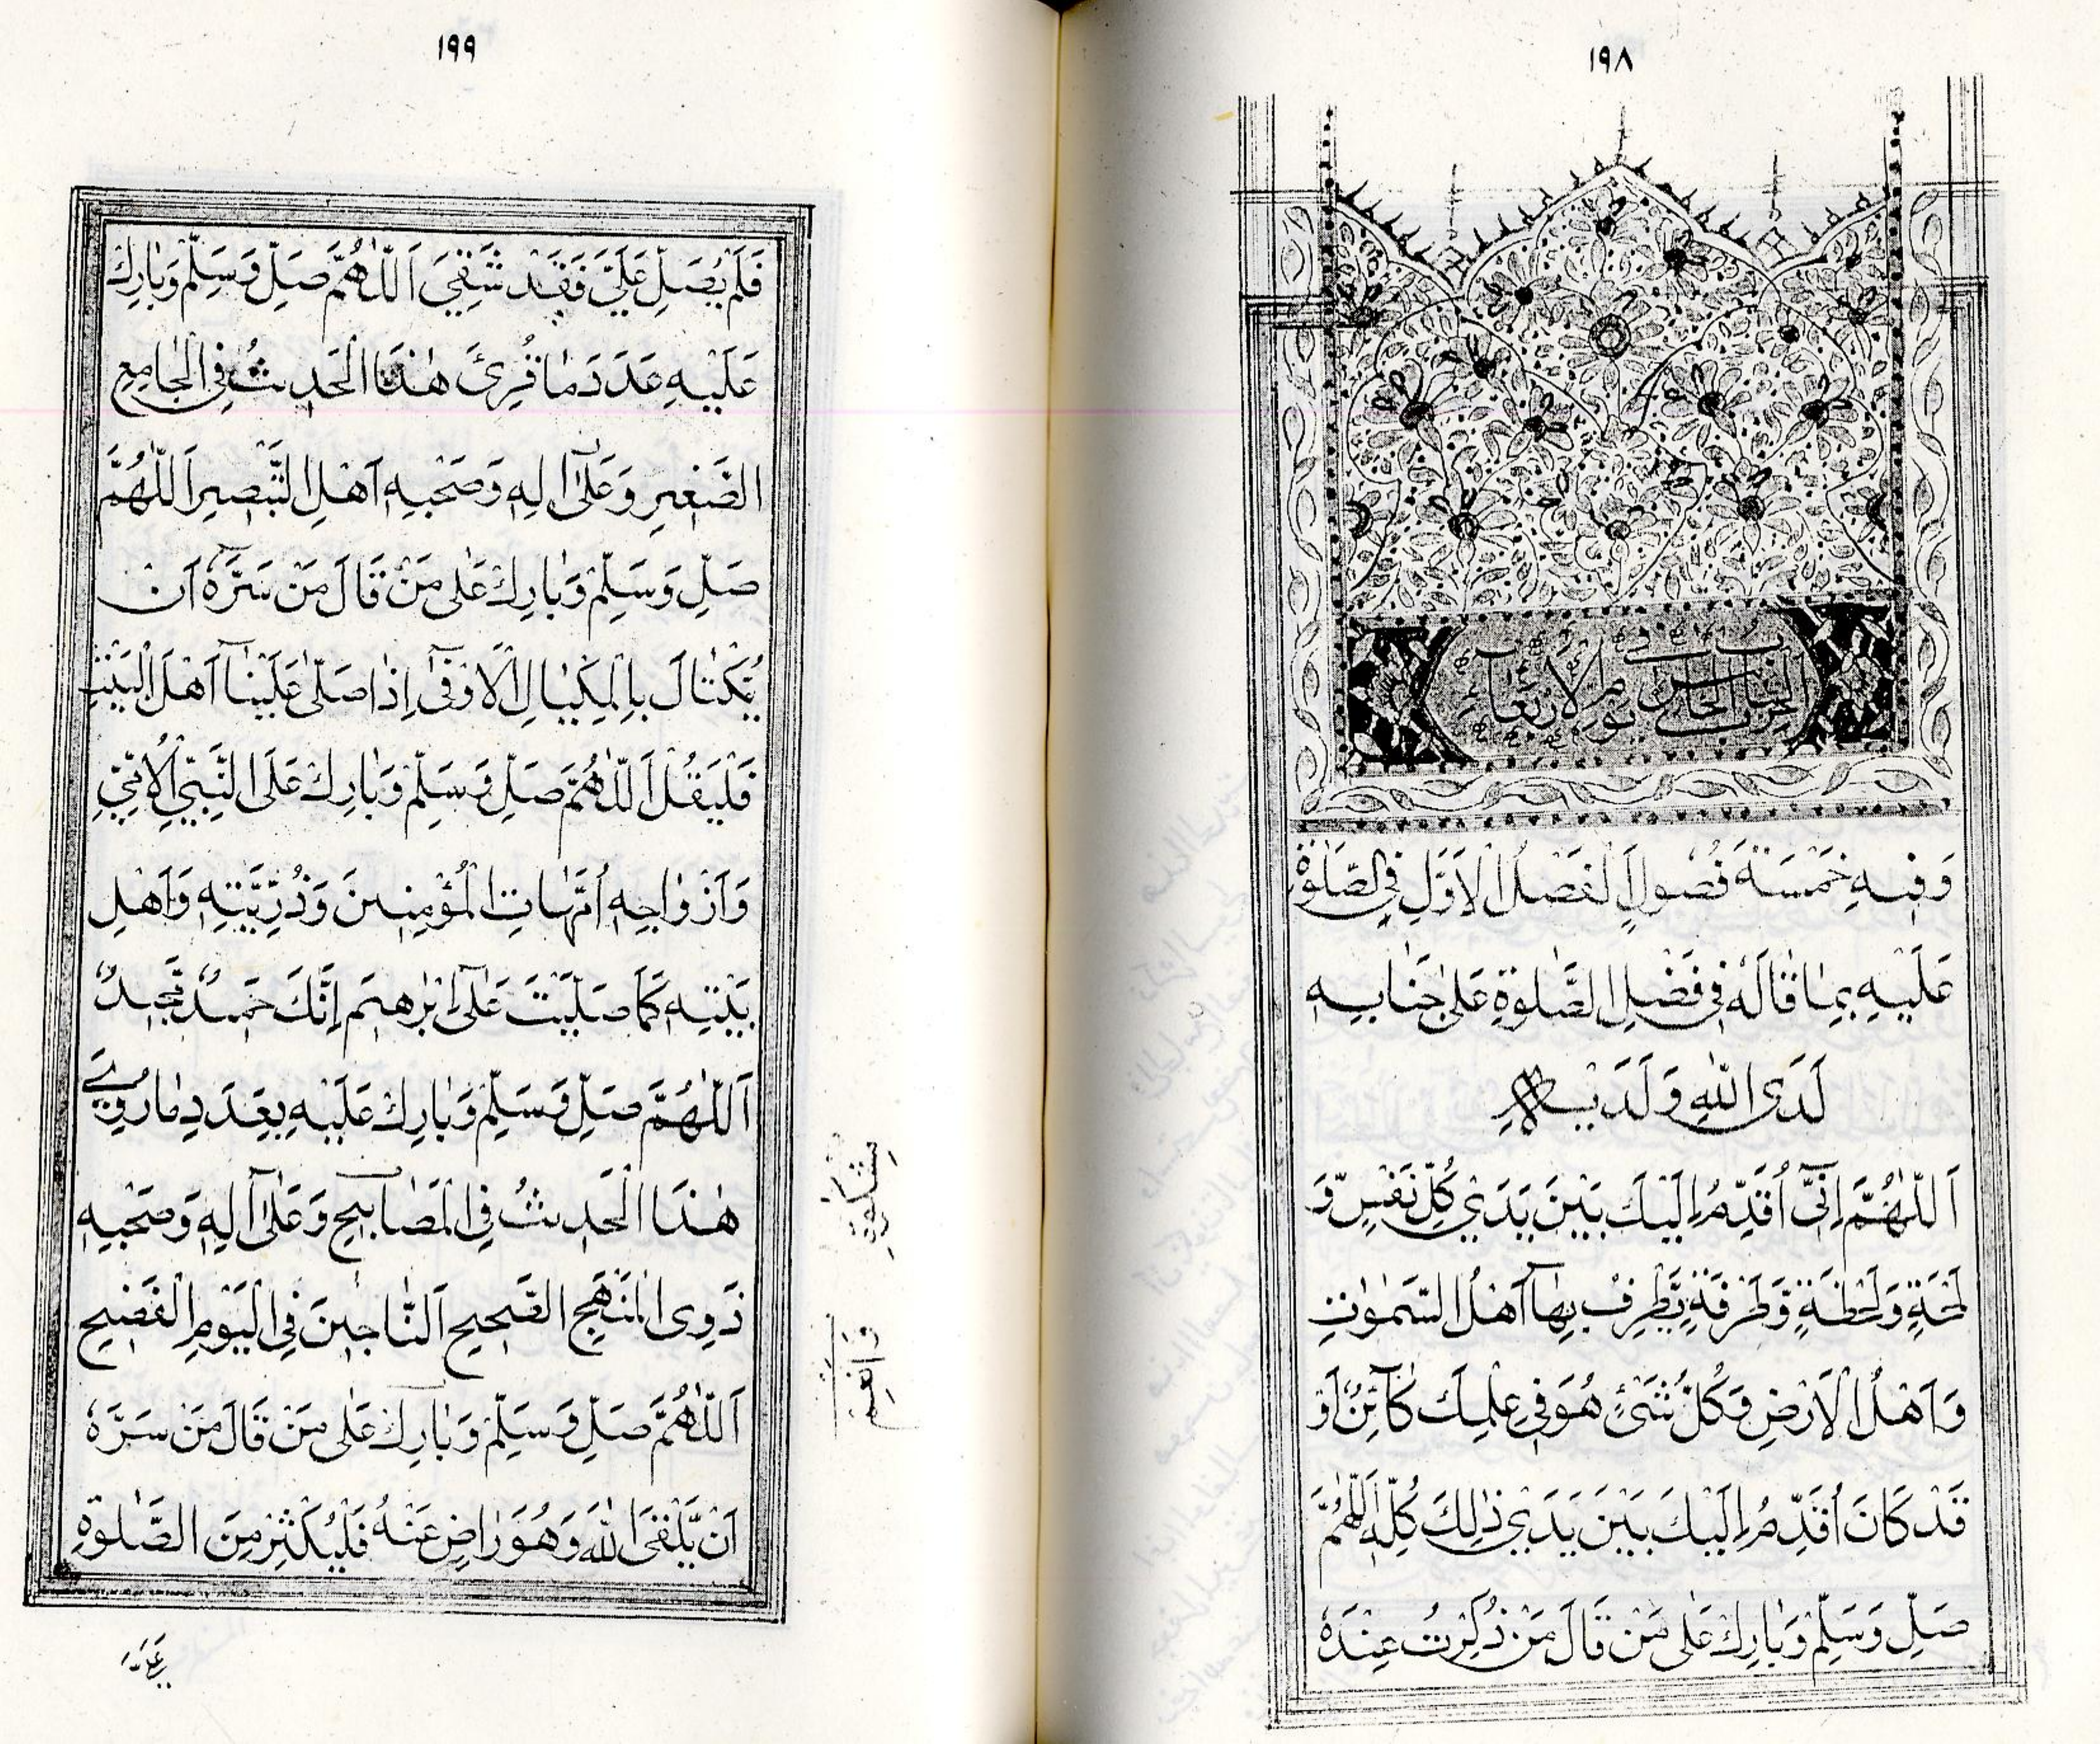 ١٩٨
الحزب الخامس يوم الاربعاء
وَفِيهِ خَمْسَةُ فُصُولٍ اَلْفَصْلُ الْاَوَّلِ فِي الصَّلٰوةِ
عَلَيْهِ بِمَا قَالَهُ فِي فَضْلِ الصَّلٰوةِ عَلٰى جَنَابِهِ
لَدَى اللّٰهِ وَلَدَيْهِ
اَللّٰهُمَّ اِنِّىٓ اُقَدِّمُ اِلَيْكَ بَيْنَ يَدَيْ كُلِّ نَفَسٍ وَّ
لَمْحَةٍ وَلَحْظَةٍ وَّطَرْفَةٍ يَّطْرِفُ بِهَآ اَهْلُ السَّمٰوٰتِ
وَاَهْلُ الْاَرْضِ وَكُلُّ شَيْئٍ هُوَ فِي عِلْمِكَ كَآئِنٌ اَوْ
قَدْ كَانَ اُقَدِّمُ اِلَيْكَ بَيْنَ يَدَيْ ذٰلِكَ كُلِّهِ اَللّٰهُمَّ
صَلِّ وَسَلِّمْ وَبَارِكْ عَلٰى مَنْ قَالَ مَنْ ذُكِرْتُ عِنْدَهُ
١٩٩
فَلَمْ يُصَلِّ عَلَيَّ فَقَدْ شَقِيَ اَللّٰهُمَّ صَلِّ وَسَلِّمْ وَبَارِكْ
عَلَيْهِ عَدَدَ مَا قُرِئَ هٰذَا الْحَدِيثُ فِي الْجَامِعِ
الصَّغِيرِ وَعَلٰىٓ اٰلِهِ وَصَحْبِهِ اَهْلِ التَّبْصِيرِ اَللّٰهُمَّ
صَلِّ وَسَلِّمْ وَبَارِكْ عَلٰى مَنْ قَالَ مَنْ سَرَّهُٓ اَنْ
يَّكْتَالَ بِالْمِكْيَالِ الْاَوْفٰىٓ اِذَا صَلّٰى عَلَيْنَآ اَهْلَ الْبَيْتِ
فَلْيَقُلْ اَللّٰهُمَّ صَلِّ وَسَلِّمْ وَبَارِكْ عَلَى النَّبِيِّ الْاُمِّيِّ
وَاَزْوَاجِهِ اُمَّهَاتِ الْمُؤْمِنِينَ وَذُرِّيَّتِهِ وَاَهْلِ
بَيْتِهِ كَمَا صَلَّيْتَ عَلٰىٓ اِبْرٰهِيمَ اِنَّكَ حَمِيدٌ مَّجِيدٌ
اَللّٰهُمَّ صَلِّ وَسَلِّمْ وَبَارِكْ عَلَيْهِ بِعَدَدِ مَا رُوِيَ
هٰذَا الْحَدِيثُ فِي الْمَصَابِيحِ وَعَلٰىٓ اٰلِهِ وَصَحْبِهِ
ذَوِى الْمَنْهَجِ الصَّحِيحِ اَلنَّاجِينَ فِي الْيَوْمِ الْفَضِيحِ
اَللّٰهُمَّ صَلِّ وَسَلِّمْ وَبَارِكْ عَلٰى مَنْ قَالَ مَنْ سَرَّهُٓ
اَنْ يَّلْقَى اللّٰهَ وَهُوَ رَاضٍ عَنْهُ فَلْيُكْثِرْ مِنَ الصَّلٰوةِ
وَاَنْعِمْ
عَلَيَّ